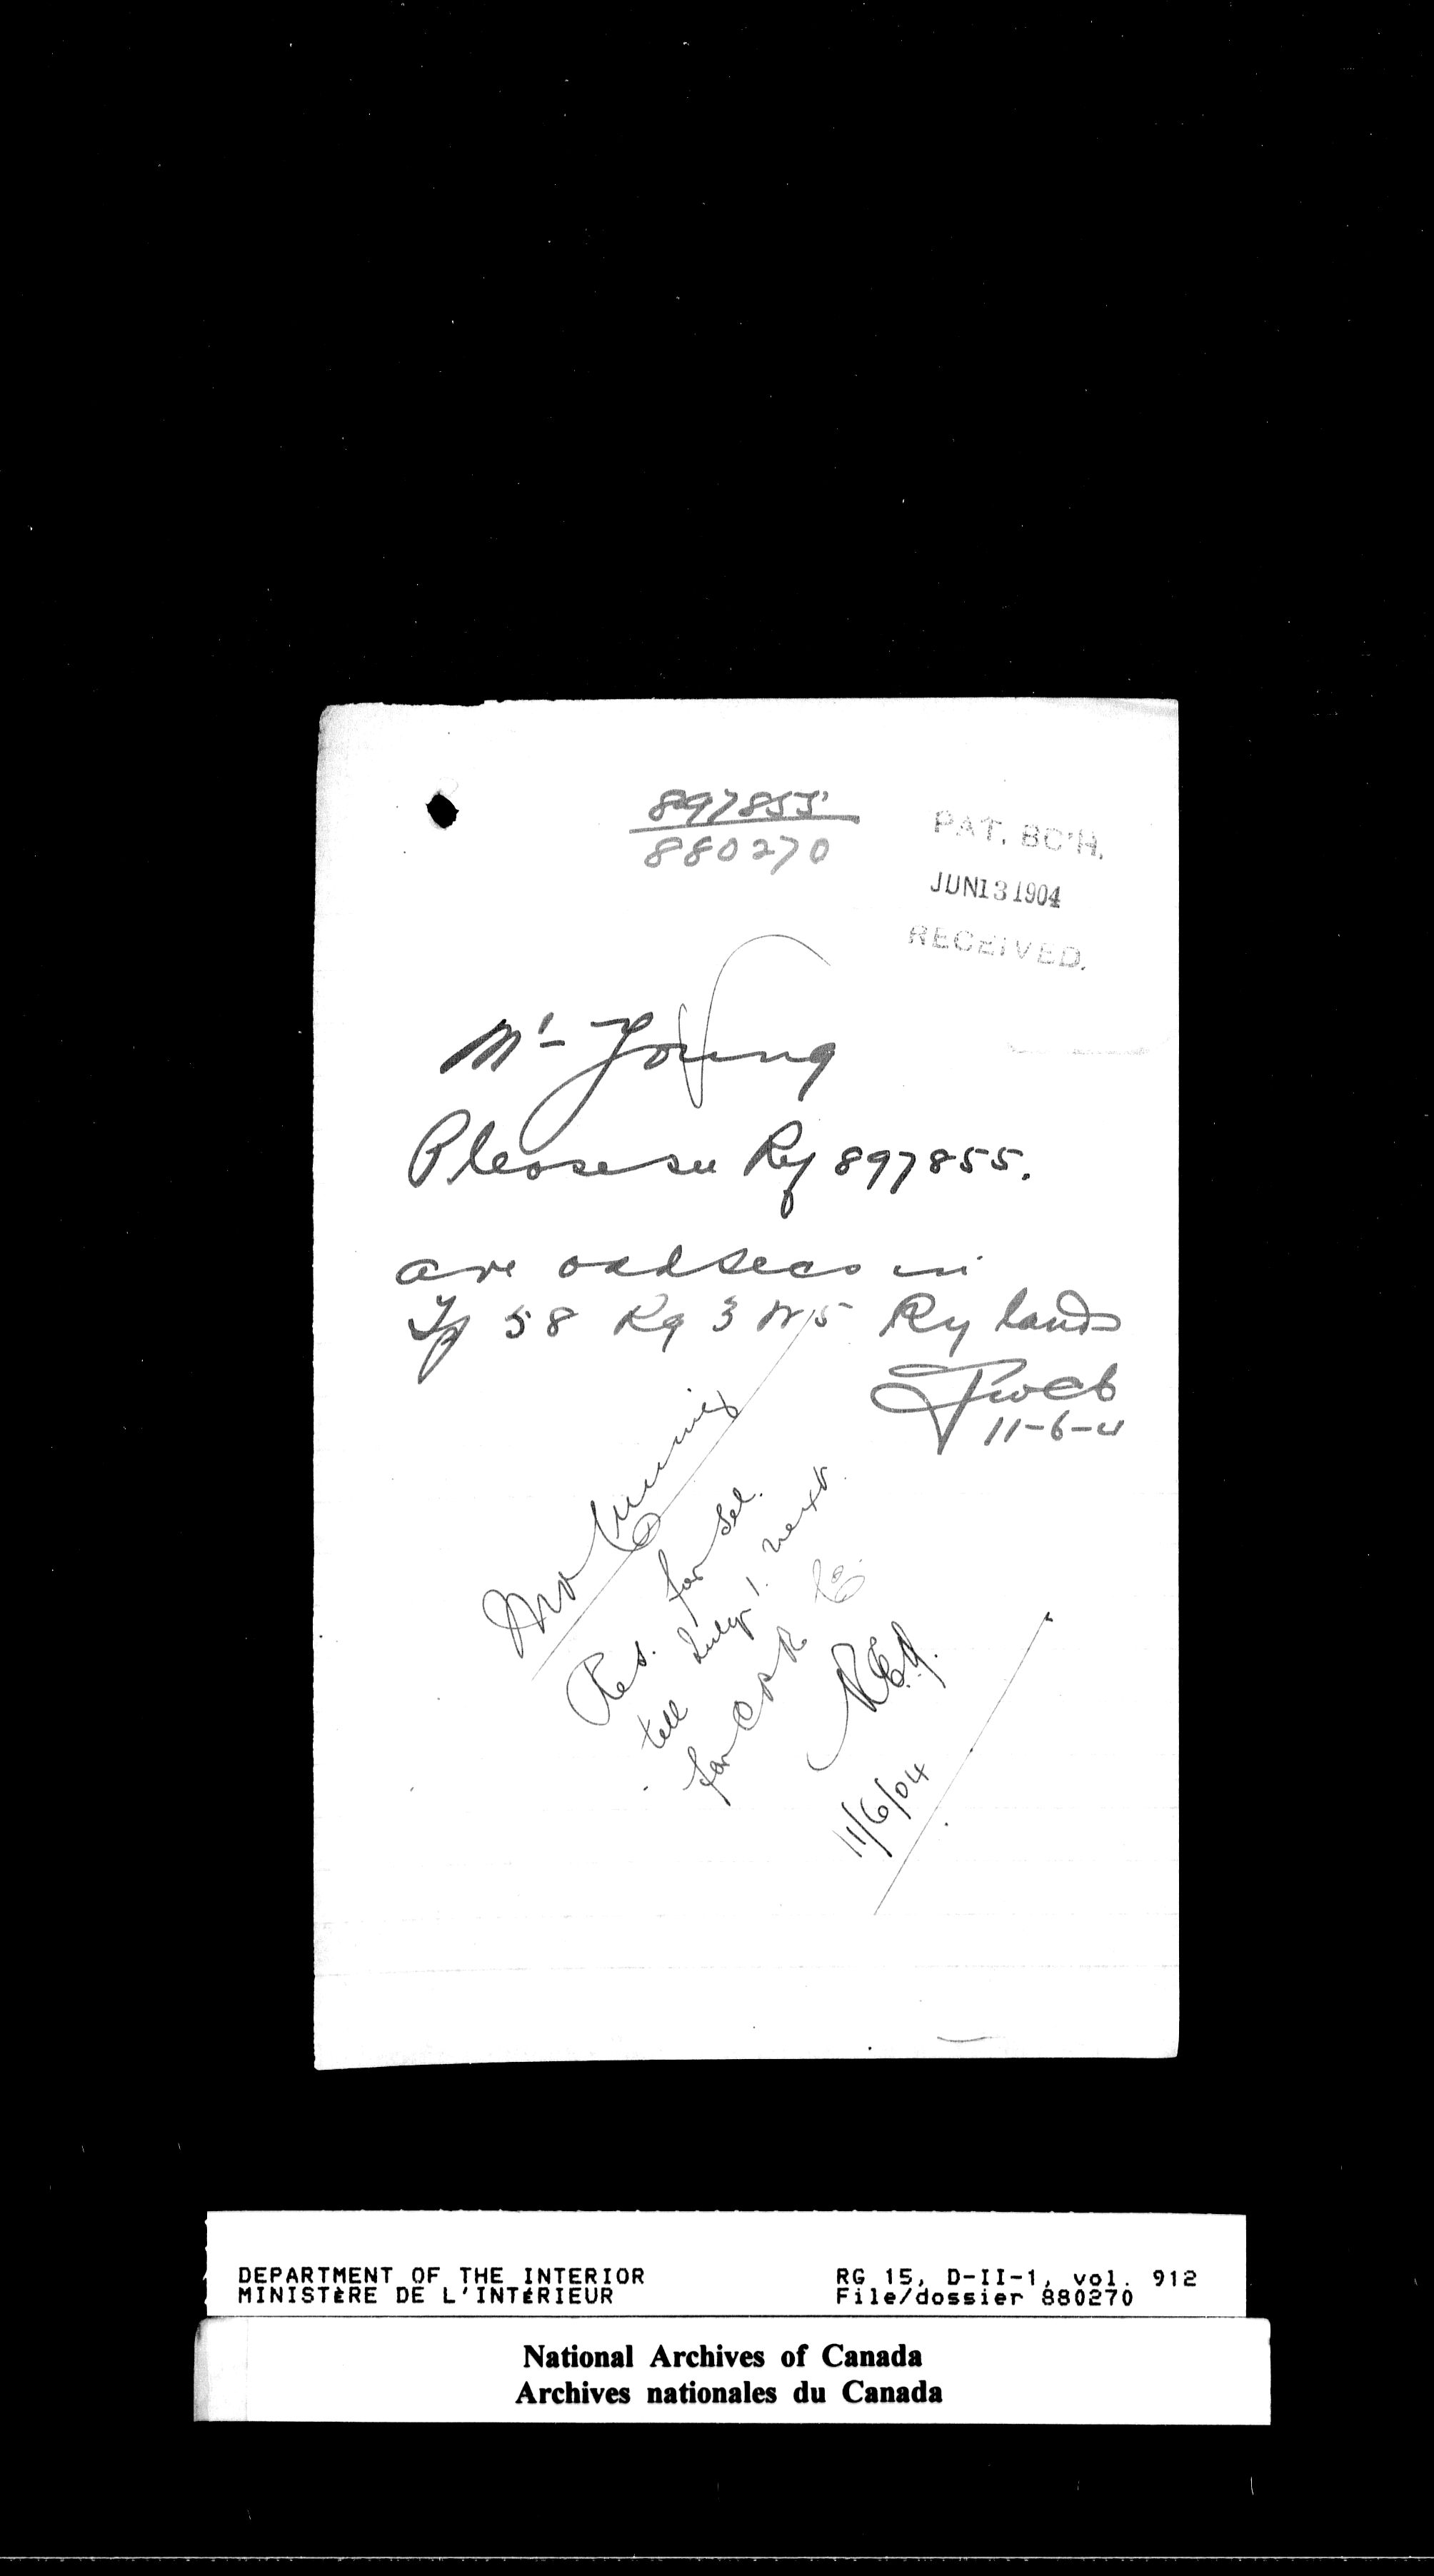 897855
880270
PAT. BC'H.
JUN 13 1904
RECEIVED.
Mr Young
Please see Ry 897855.
are odd secs in
Tp 58 Rg 3 W5 Ry lands
11-6-4
Mr
Res. for Sel.
till July 1. next
for C P R Co.
11/6/04
DEPARTMENT OF THE INTERIOR
MINISTÈRE DE L'INTÉRIEUR
RG 15, D-II-1, vol. 912
File/dossier 880270
National Archives of Canada
Archives nationales du Canada